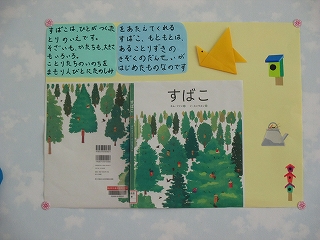 すばこは、ひとがつくった
とりのいえです。
そざいも、かたちも、大きさ
もいろいろ。
ことりたちのいのちを
まもりひとにたのしみ
をあたえてくれる
すばこ、もともとは、
あることりずきの
きぞくのだんせいが
はじめたものなのです
すばこ